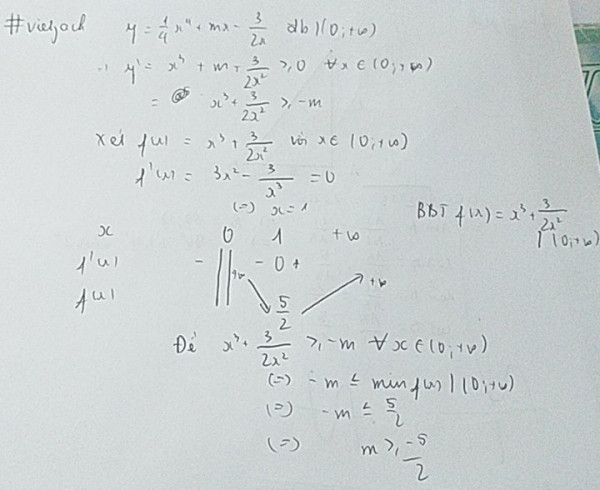 #vietjack y = 1/4 x⁴ + mx - 3/2x đb | (0;+∞)
=> y' = x³ + m + 3/2x² ≥ 0 ∀x ∈ (0;+∞)
= x³ + 3/2x² ≥ -m
Xét f(x) = x³ + 3/2x² với x ∈ (0;+∞)
f'(x) = 3x² - 3/x³ = 0
(=) x = 1
BBT f(x) = x³ + 3/2x² | (0;+∞)
x 0 1 +∞
f'(x) - || - 0 +
f(x) +∞ 5/2 +∞
Để x³ + 3/2x² ≥ -m ∀x ∈ (0;+∞)
(=) -m ≤ min f(x) | (0;+∞)
(=) -m ≤ 5/2
(=) m ≥ -5/2